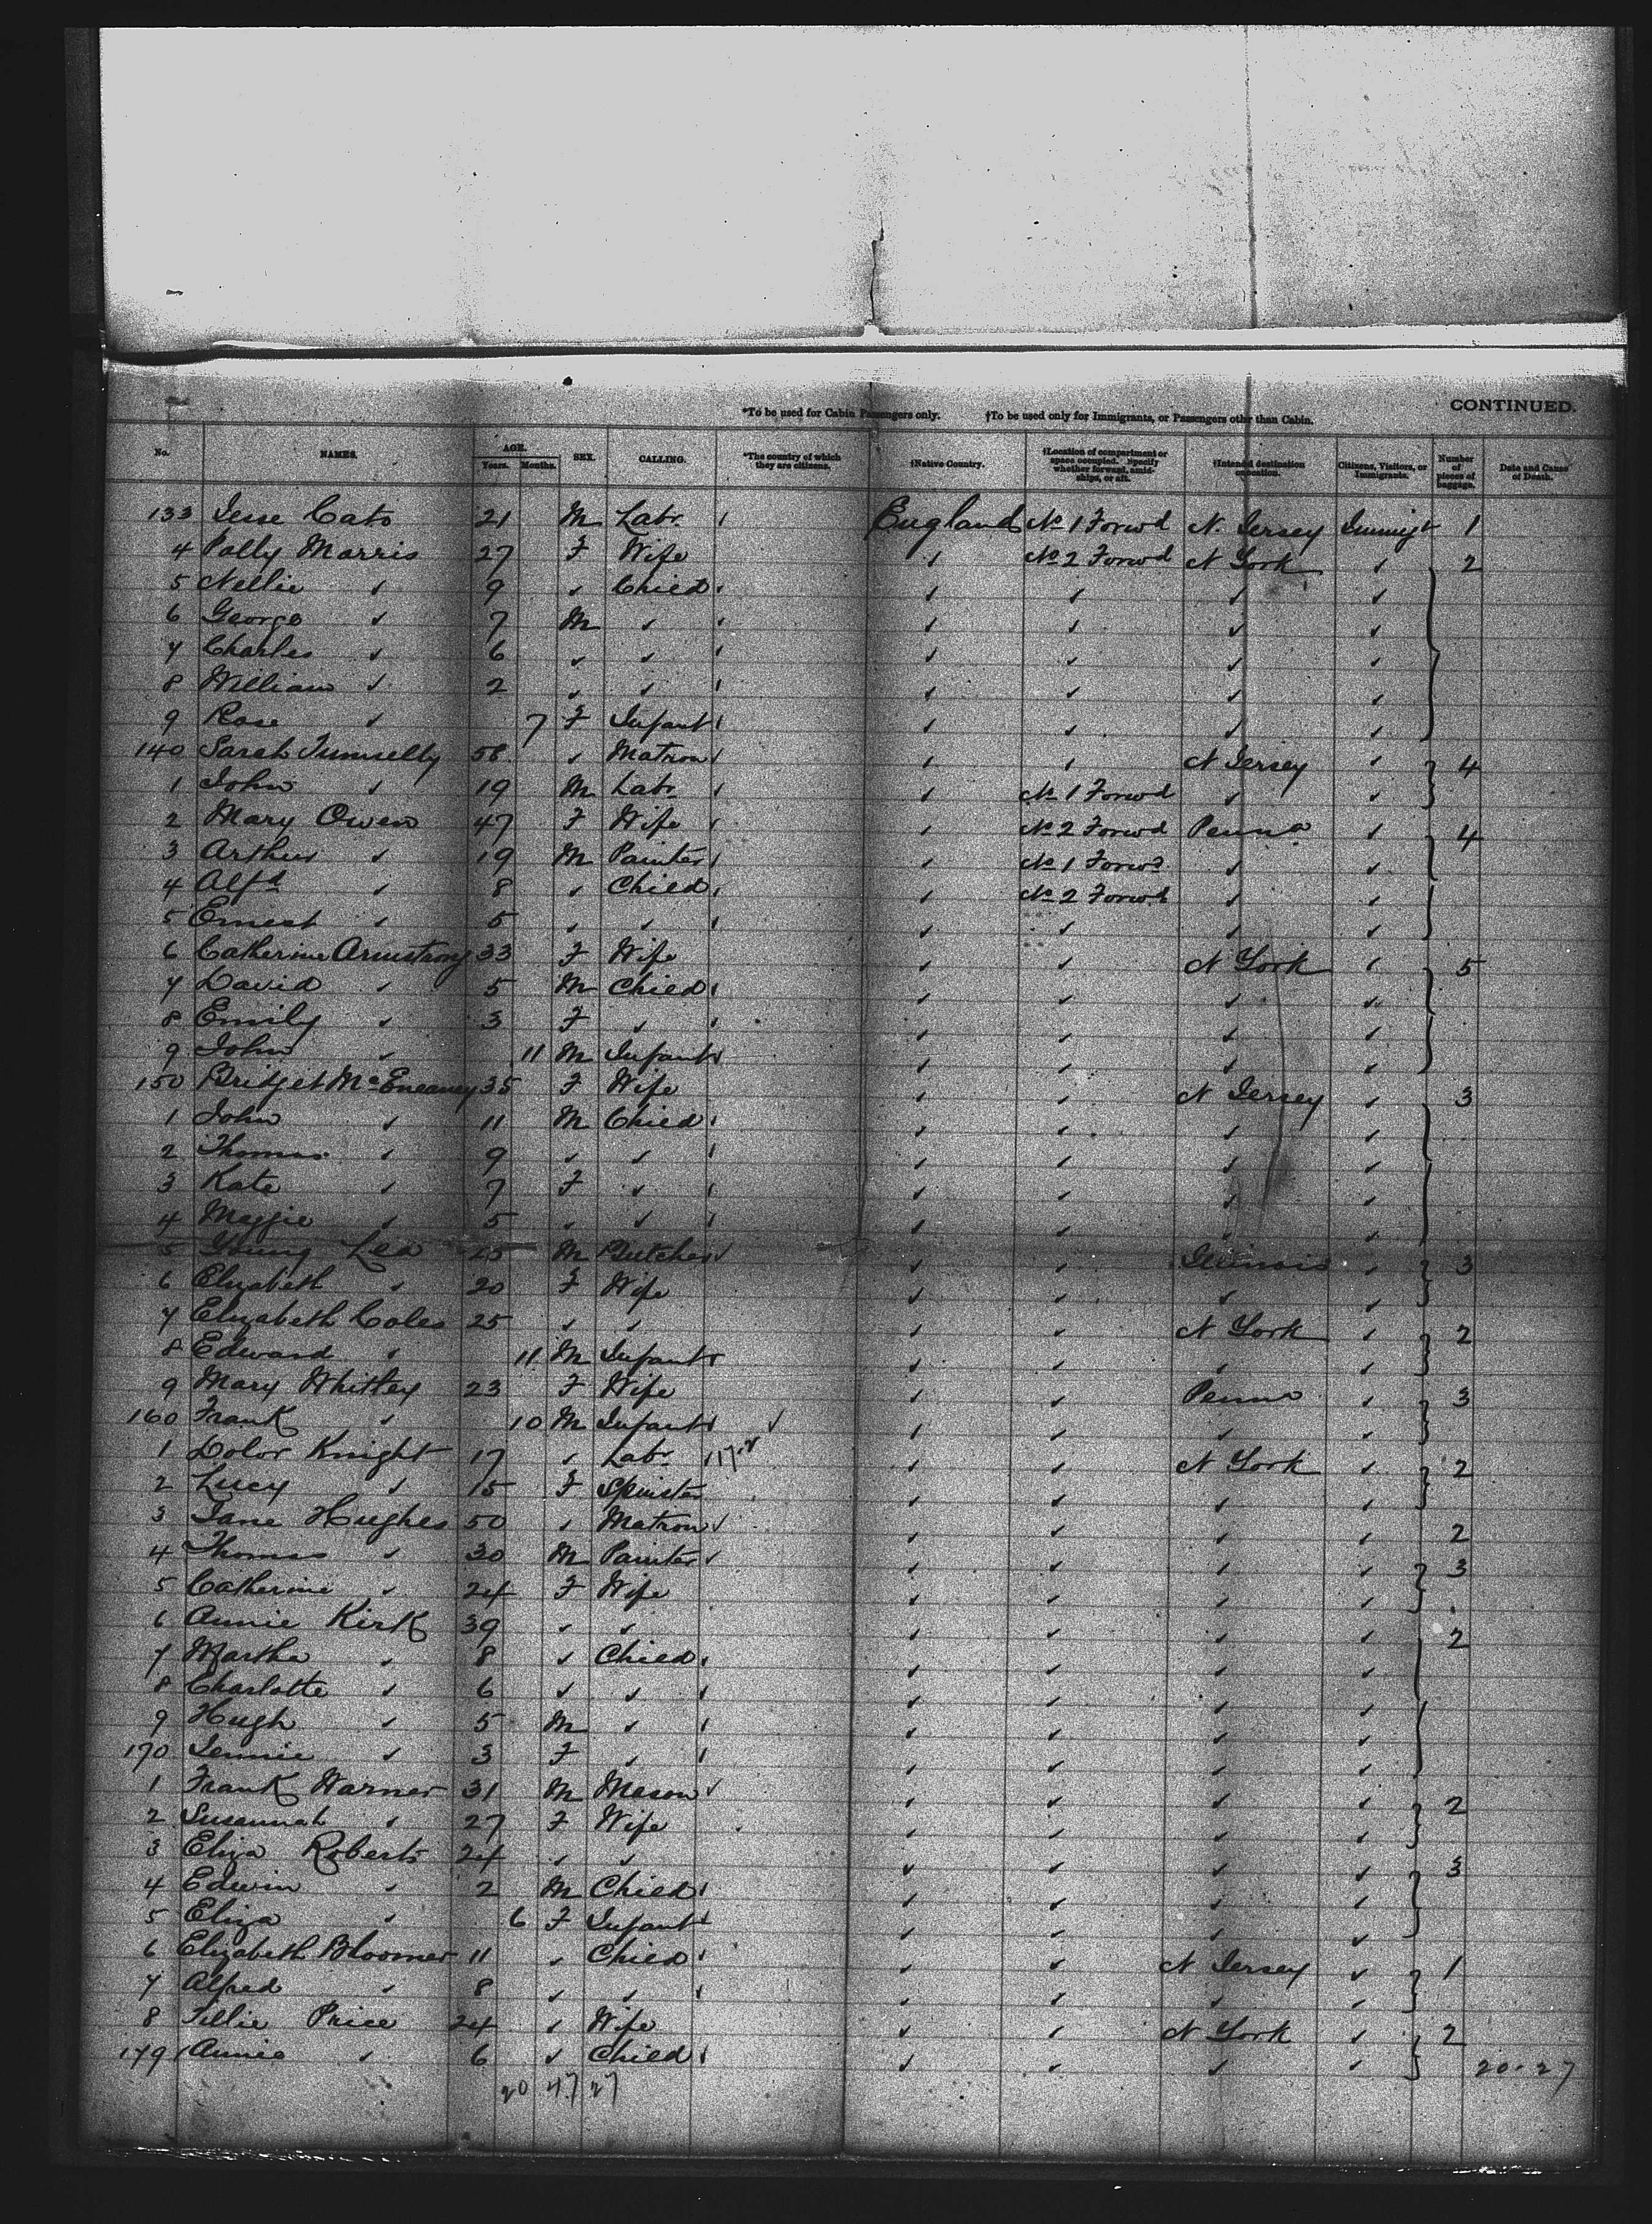 CONTINUED.
*To be used for Cabin Passengers only. †To be used only for Immigrants, or Passengers other than Cabin.
No. NAMES. AGE. Years. Months. SEX. CALLING. *The country of which they are citizens. †Native Country. †Location of compartment or space occupied. Specify whether forward, amidships, or aft. †Intended destination Citizens, Visitors, or Immigrants. Number of pieces of baggage. Date and Cause of Death.
133 Jesse Cato 21 M Labr. England No 1 Forwd N. Jersey Immigt 1
4 Polly Morris 27 F Wife " No 2 Forwd N York " 2
5 Nellie " 9 " Child " " " "
6 George " 7 M " " " " "
7 Charles " 6 " " " " " "
8 William " 2 " " " " " "
9 Rose " 7 F Infant " " " "
140 Sarah 58 " Matron " " N Jersey " 4
1 John " 19 M Labr " No 1 Forwd " "
2 Mary Owen 47 F Wife " No 2 Forwd Penna " 4
3 Arthur " 19 M Painter " No 1 Forwd " "
4 Alfd " 8 " Child " No 2 Forwd " "
5 Ernest " 5 " " " " " "
6 Catherine Armstrong 33 F Wife " " N York " 5
7 David " 5 M Child " " " "
8 Emily " 3 F " " " " "
9 John " 11 M Infant " " " "
150 Bridget McEneaney 35 F Wife " " N Jersey " 3
1 John " 11 M Child " " " "
2 Thomas " 9 " " " " " "
3 Kate " 7 F " " " " "
4 Maggie " 5 " " " " " "
5 Young Lea 25 M Butcher " " Illinois " 3
6 Elizabeth " 20 F Wife " " " "
7 Elizabeth Coles 25 " " " " N York " 2
8 Edward " 11 M Infant " " " "
9 Mary Whittey 23 F Wife " " Penna " 3
160 Frank " 10 M Infant " " " "
1 Dolor Knight 17 " Labr " " N York " 2
2 Lucy " 15 F Spinster " " " "
3 Jane Hughes 50 " Matron " " " " 2
4 Thomas " 30 M Painter " " " " 3
5 Catherine " 24 F Wife " " " "
6 Annie Kirk 39 " " " " " " 2
7 Martha " 8 " Child " " " "
8 Charlotte " 6 " " " " " "
9 Hugh " 5 M " " " " "
170 Jennie " 3 F " " " " "
1 Frank Warner 31 M Mason " " " " 2
2 Susannah " 27 F Wife " " " "
3 Eliza Roberts 24 " " " " " " 3
4 Edwin " 2 M Child " " " "
5 Eliza " 6 F Infant " " " "
6 Elizabeth Bloomer 11 " Child " " N Jersey " 1
7 Alfred " 8 " " " " " "
8 Tillie Price 24 " Wife " " N York " 2
179 Annie " 6 " Child " " " " 20-27
20 47 27